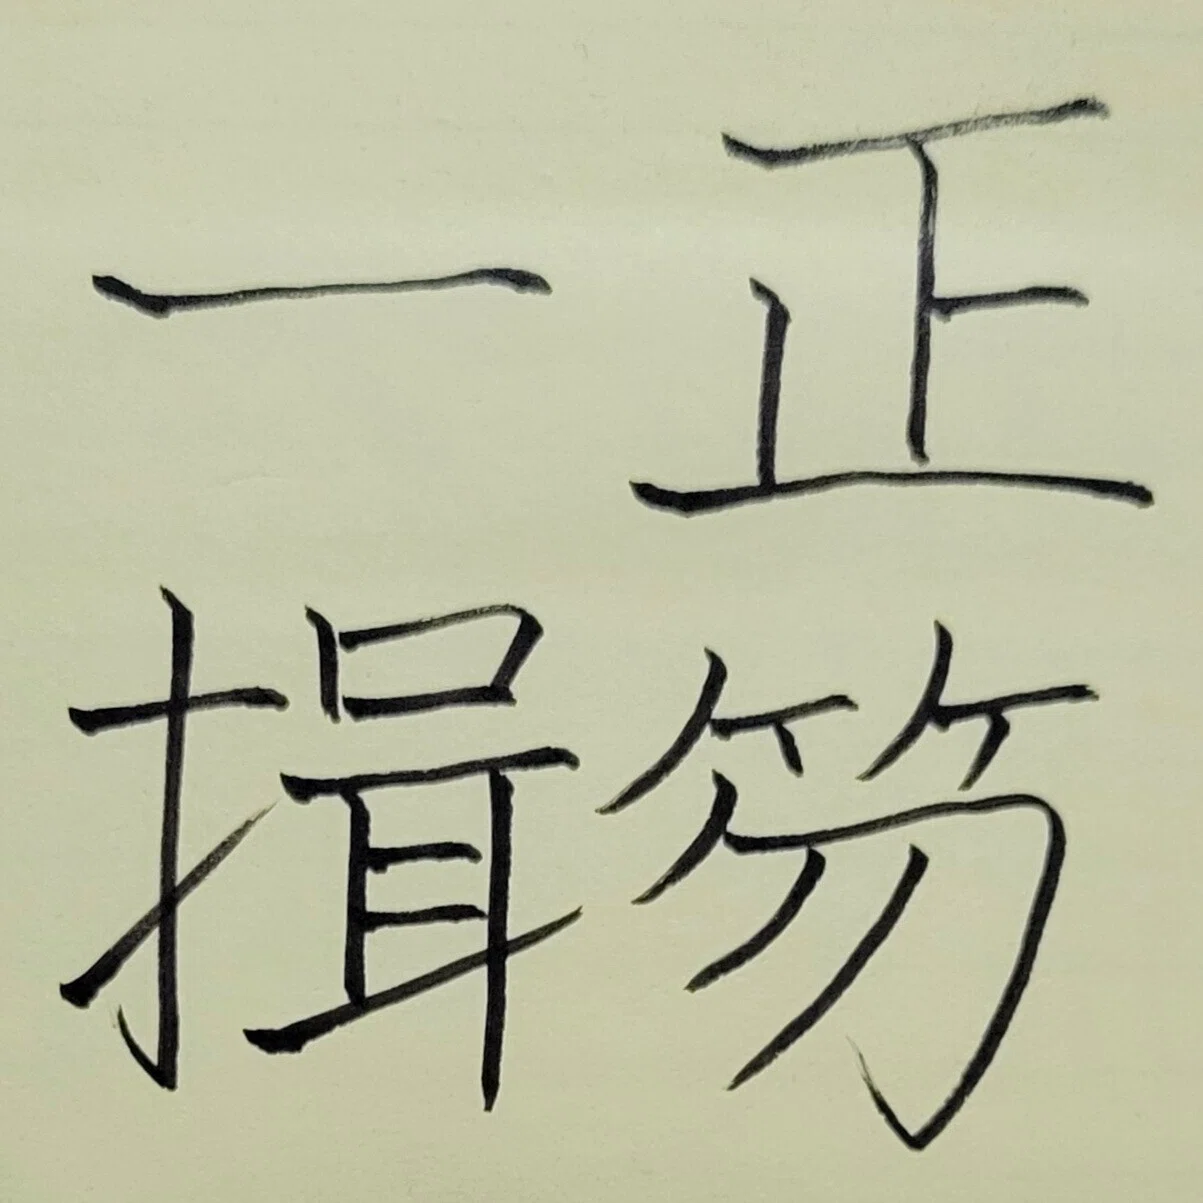 正笏
一揖